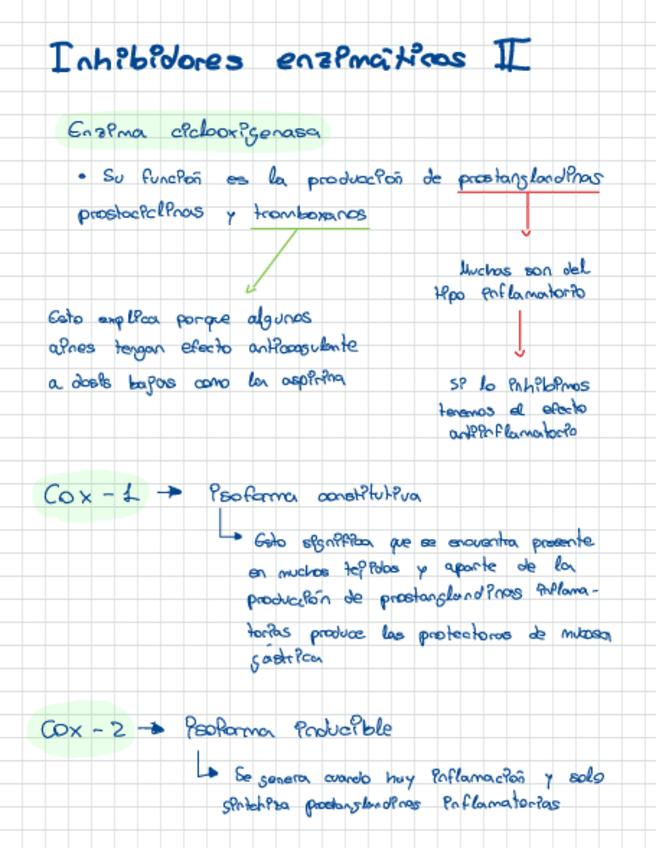 Inhibidores enzimáticos II
Enzima ciclooxigenasa
• Su función es la producción de prostanglandinas
prostaciclinas y tromboxanos
Muchas son del
tipo inflamatorio
Esto explica porque algunos
aines tengan efecto anticoagulante
a dosis bajas como la aspirina
si lo inhibimos
tenemos el efecto
antiinflamatorio
Cox - 1 → isoforma constitutiva
Esto significa que se encuentra presente
en muchos tejidos y aparte de la
producción de prostanglandinas inflama-
torias produce las protectoras de mucosa
gástrica
Cox - 2 → isoforma inducible
Se genera cuando huy inflamación y solo
sintetiza prostanglandinas inflamatorias